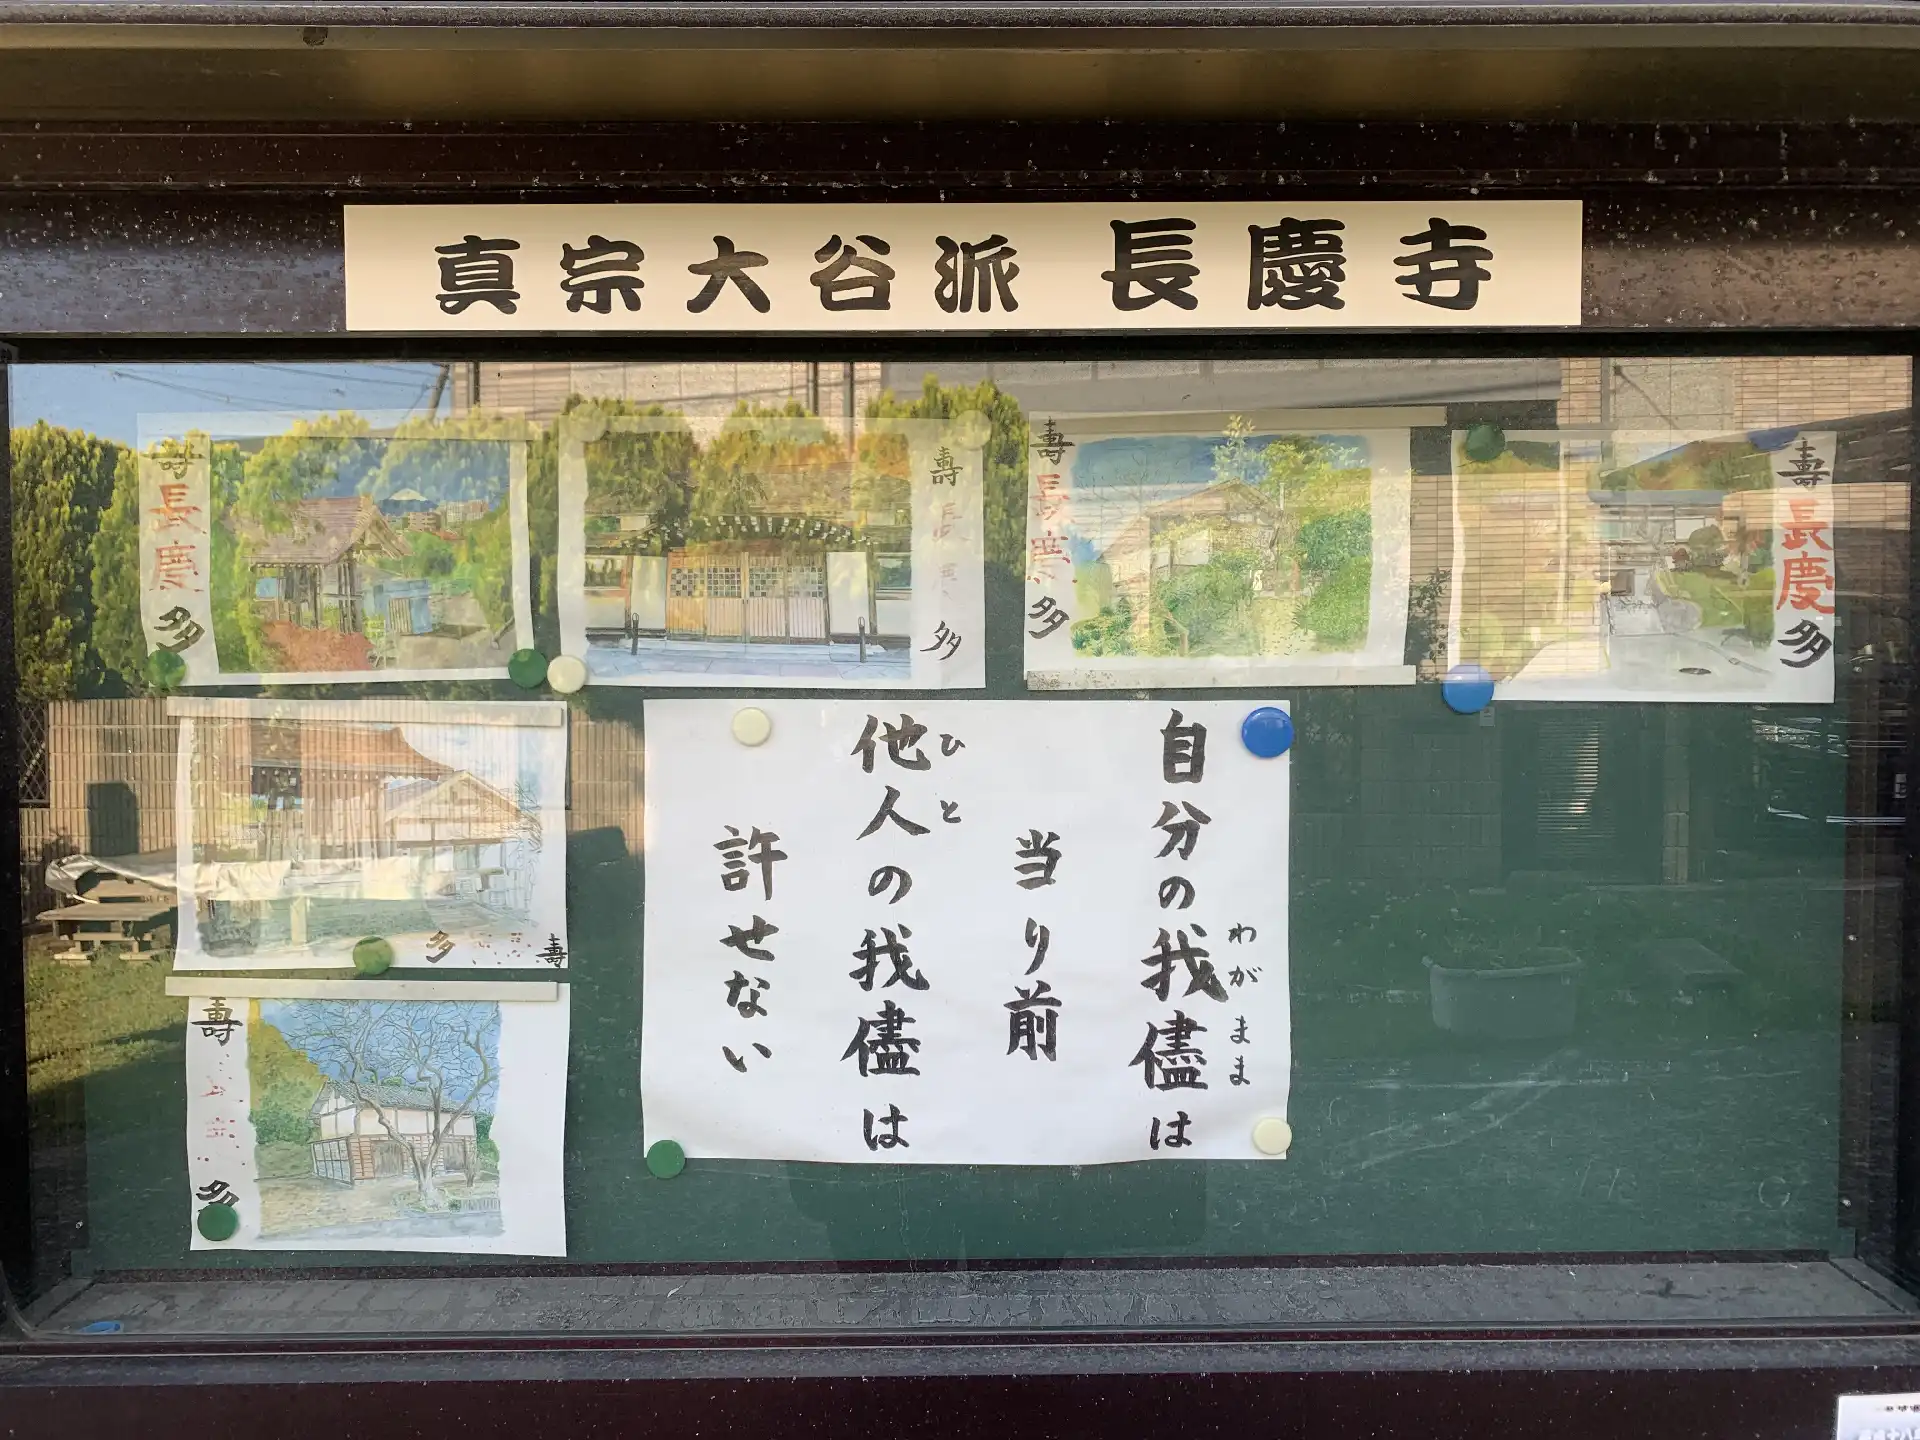 真宗大谷派 長慶寺
壽
長慶
多
壽
長慶
多
壽
長慶
多
壽
長慶
多
自分の我儘は
わがまま
当り前
他人の我儘は
ひと
許せない
多
壽
壽
多